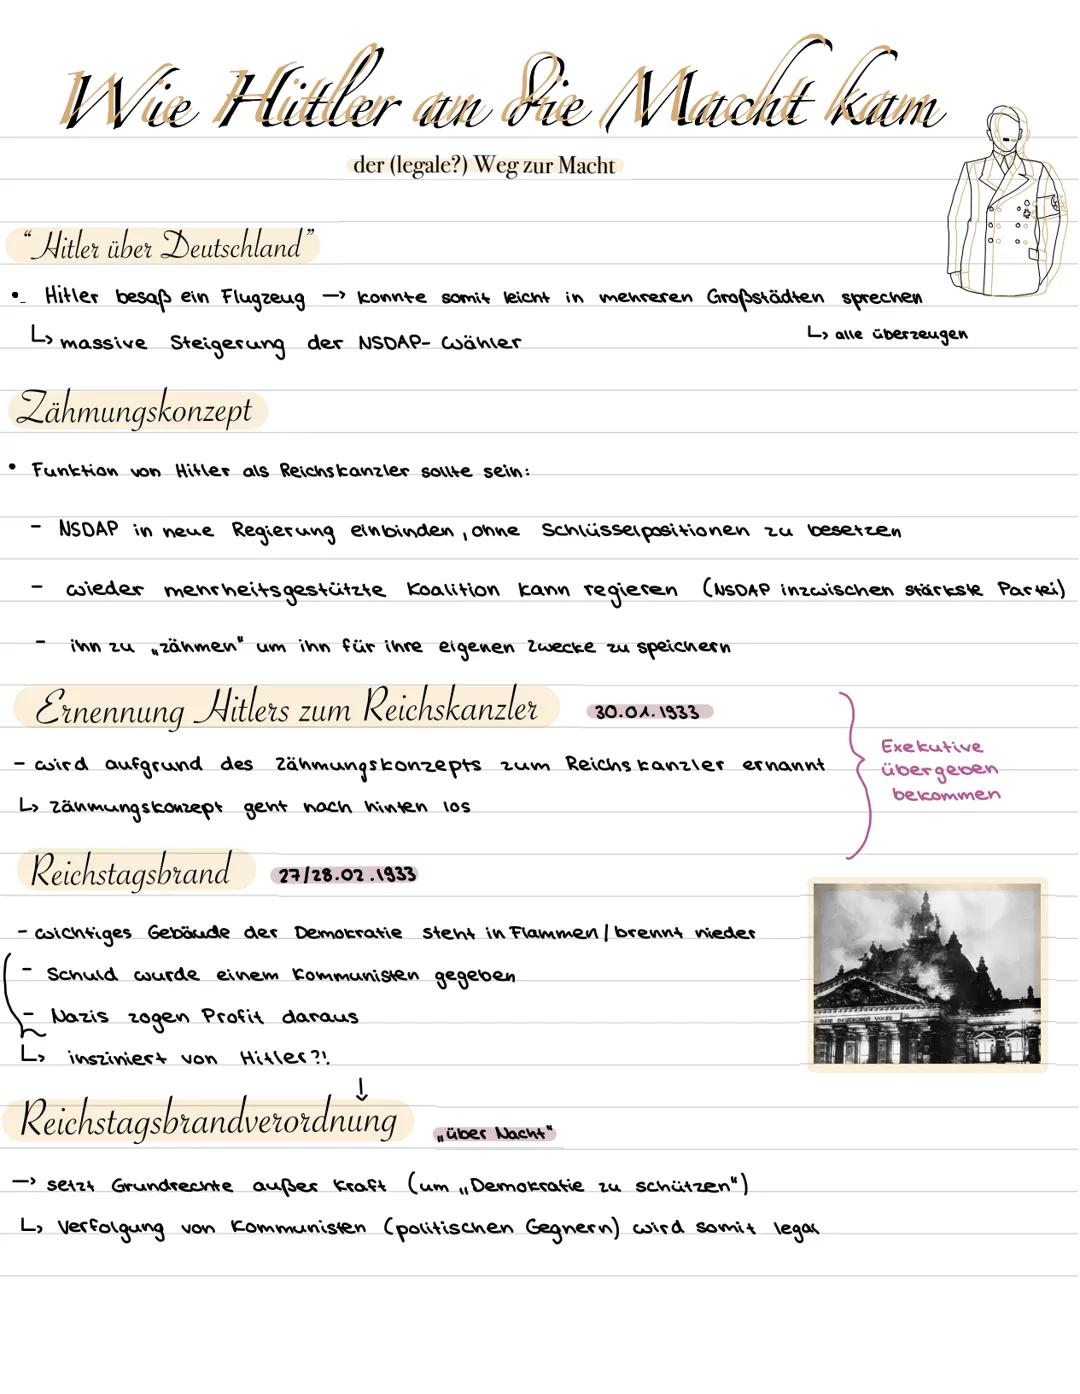 Wie Hitler an die Macht kam
der (legale?) Weg zur Macht
"Hitler über Deutschland"
• Hitler besaß ein Flugzeug → konnte somit leicht in mehreren Großstädten sprechen
↳ alle überzeugen
↳ massive Steigerung der NSDAP- Wähler
Zähmungskonzept
• Funktion von Hitler als Reichskanzler sollte sein:
- NSDAP in neue Regierung einbinden, ohne Schlüsselpositionen zu besetzen
- wieder mehrheitsgestützte Koalition kann regieren (NSDAP inzwischen stärkste Partei)
- ihn zu „zähmen" um ihn für ihre eigenen Zwecke zu speichern
Ernennung Hitlers zum Reichskanzler 30.01.1933
- wird aufgrund des Zähmungskonzepts zum Reichskanzler ernannt
↳ Zähmungskonzept geht nach hinten los
Exekutive
übergeben
bekommen
Reichstagsbrand 27/28.02.1933
- wichtiges Gebäude der Demokratie steht in Flammen/brennt nieder
- Schuld wurde einem Kommunisten gegeben
- Nazis zogen Profit daraus
↳ insziniert von Hitler?!
DEM DEUTSCHEN VOLKE
↓
Reichstagsbrandverordnung „über Nacht"
→ setzt Grundrechte außer Kraft (um „Demokratie zu schützen")
↳ Verfolgung von Kommunisten (politischen Gegnern) wird somit legal